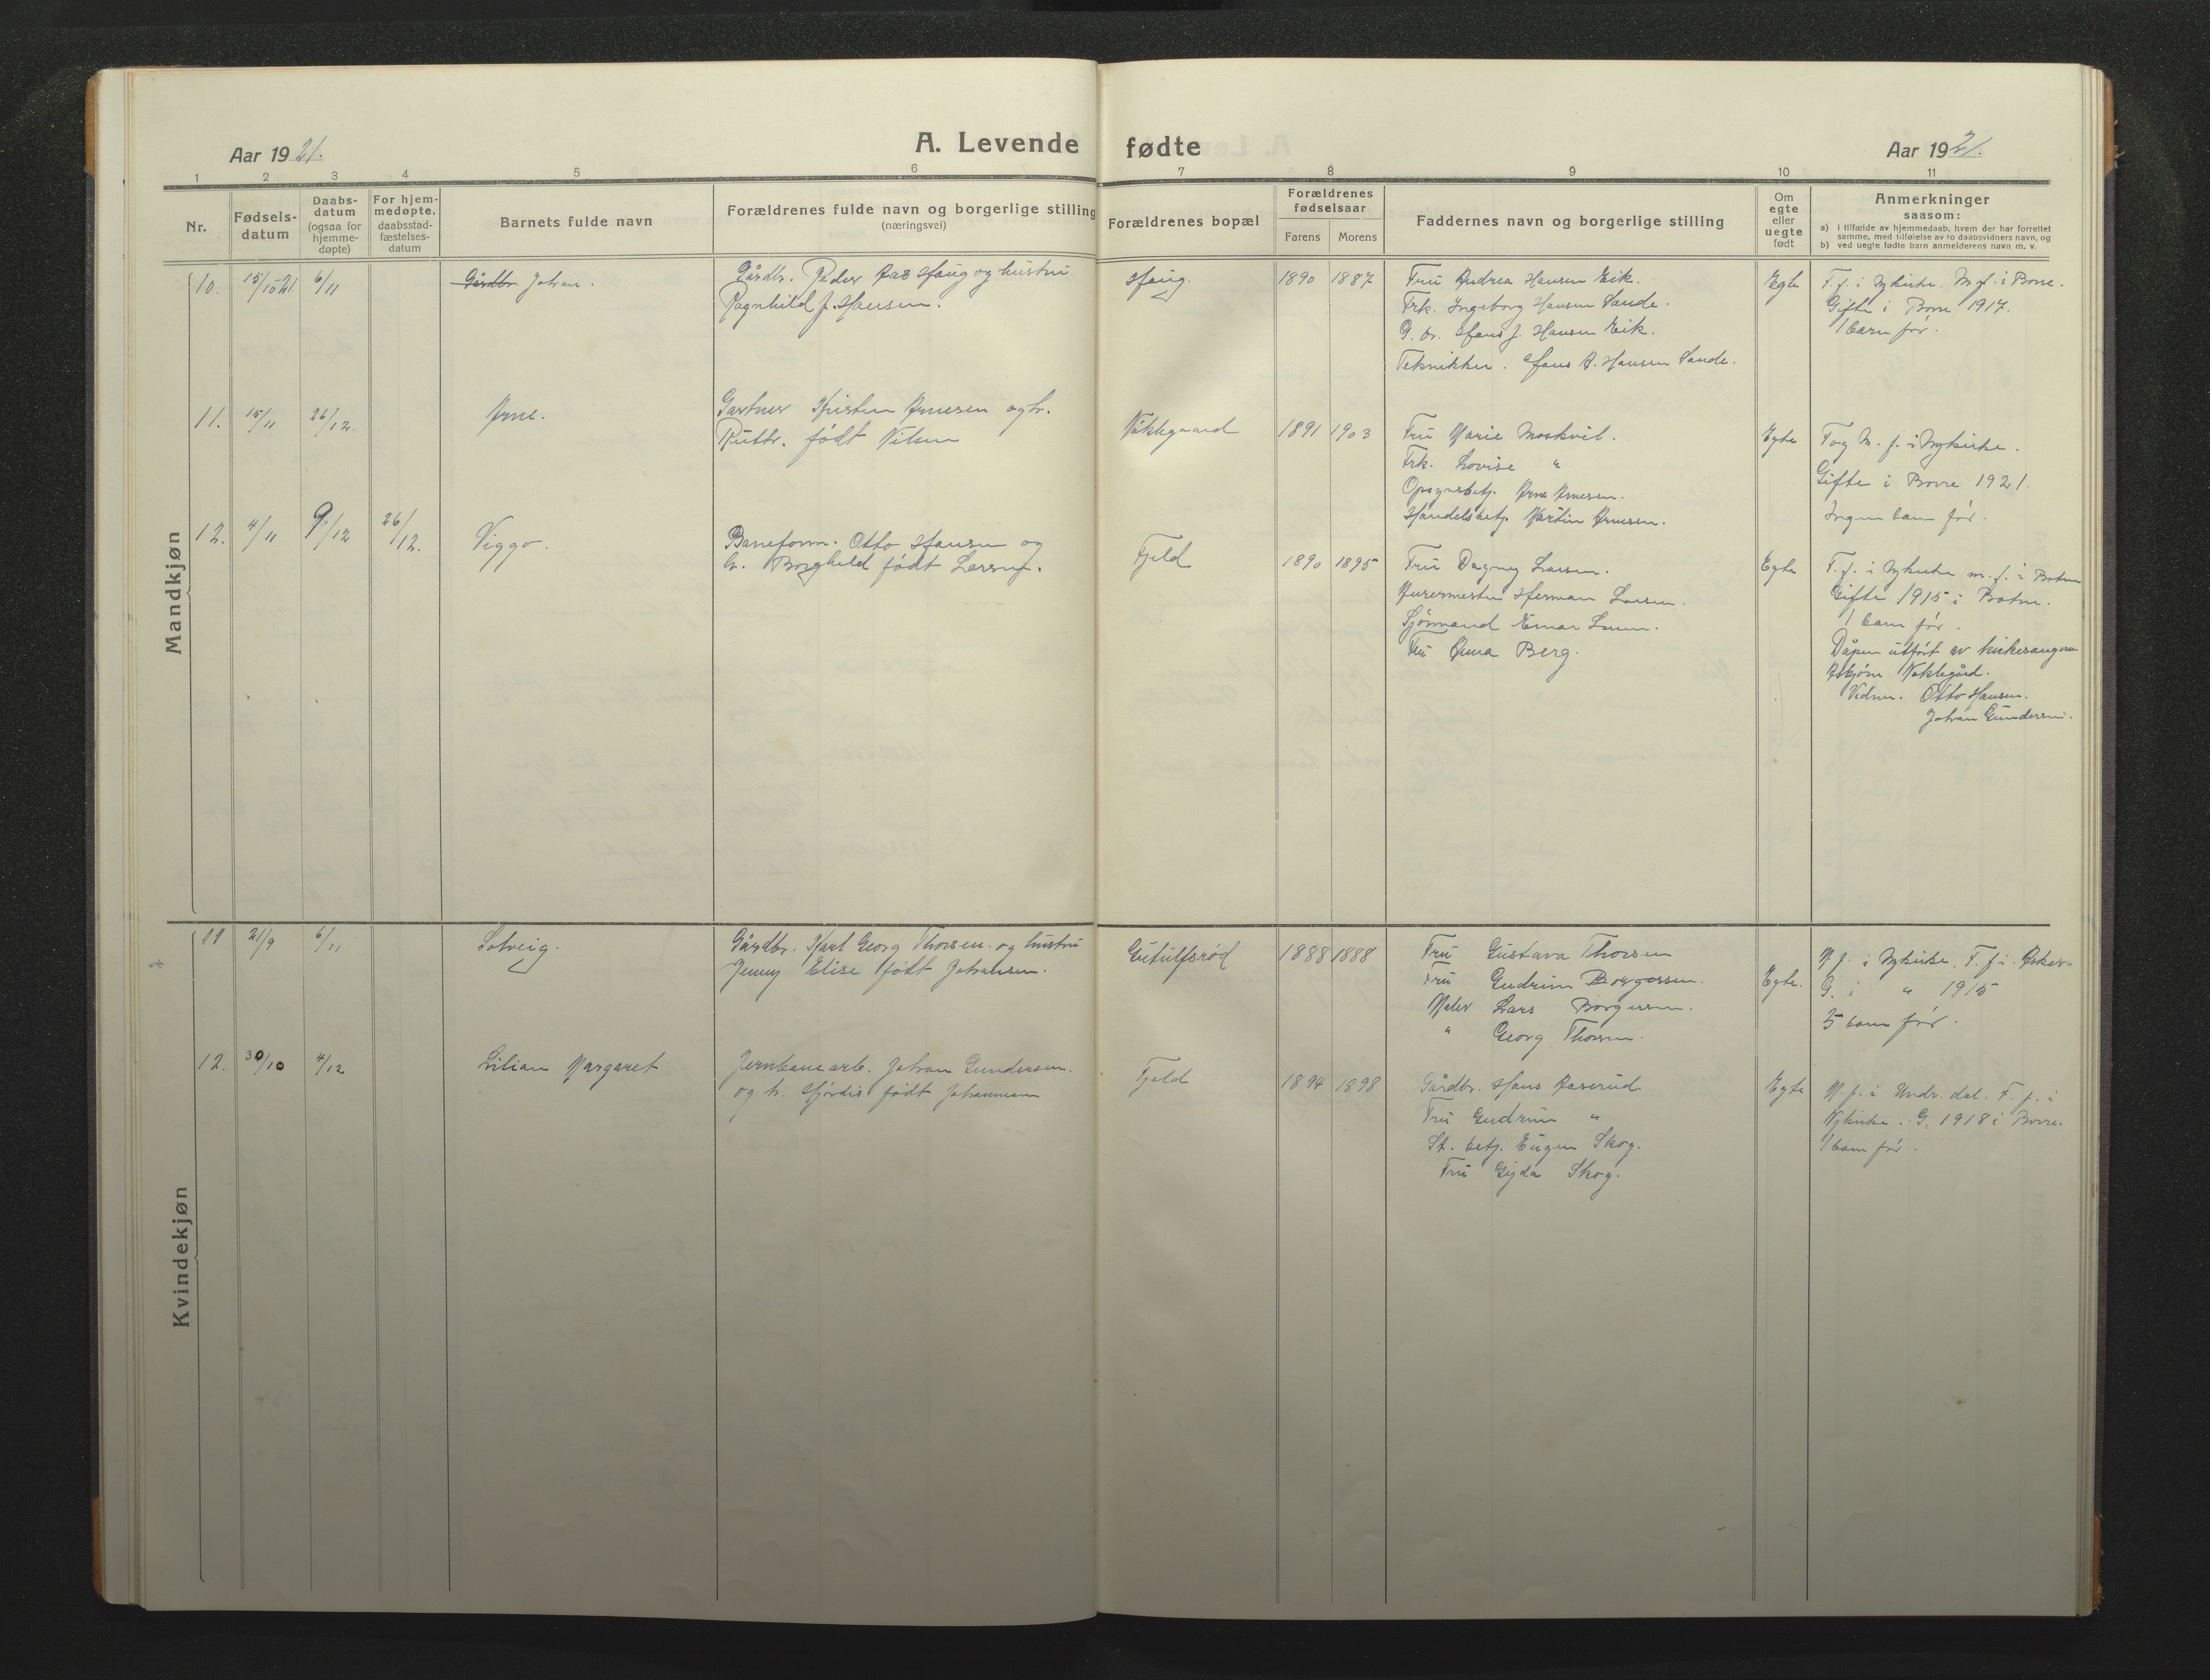 A. Levende fødte
Aar 1921.
Aar 1921.
1 2 3 4 5 6 7 8 9 10 11
Nr.
Fødsels-
datum
Daabs-
datum
(ogsaa for
hjemme-
døpte)
For hjem-
medøpte,
daabsstad-
fæstelses-
datum
Barnets fulde navn
Forældrenes fulde navn og borgerlige stilling
(næringsvei)
Forældrenes bopæl
Forældrenes
fødselsaar
Farens Morens
Faddernes navn og borgerlige stilling
Om
egte
eller
uegte
født
Anmerkninger
saasom:
a) i tilfælde av hjemmedaab, hvem der har forrettet
samme, med tilføielse av to daabsvidners navn, og
b) ved uegte fødte barn anmelderens navn m. v.
Mandkjøn
10. 15/10 6/11
Gårdbr. Johan.
Gårdbr. Peder Aas Haug og hustru
Ragnhild J. Hansen.
Haug.
1890 1887
Fru Andrea Hansen Eik.
Frk. Ingeborg Hansen Sande.
G. br. Hans J. Hansen Eik.
Tekniker. Hans A. Hansen Sande.
Egte
F. f. i Nykirke. M. f. i Borre.
Gifte i Borre 1917.
1 barn før.
11. 15/11 26/12.
Arne.
Gartner Kristen Arnesen og h.
Ruth. født Nilsen
Nøklegaard
1891 1903
Fru Marie Moskvil.
Frk. Lovise "
Opsynsbetj. Arne Arnesen.
Handelsbetj. Martin Arnesen.
Egte
F og M. f. i Nykirke.
Gifte i Borre 1921.
Ingen barn før.
12. 4/11 9/12 26/12.
Viggo.
Baneform. Otto Hansen og
h. Borghild født Larsen.
Fjeld
1890 1895
Fru Dagny Larsen.
Murermester Herman Larsen.
Sjømand Einar Larsen.
Fru Anna Berg.
Egte
F. f. i Nykirke m. f. i Botne
Gifte 1915 i Botne.
1 barn før.
Dåpen utført av kirkesanger
Asbjørn Nøklegård.
Vidner. Otto Hansen.
Johan Gundersen.
Kvindekjøn
11 21/9 6/11
Solveig.
Gårdbr. Karl Georg Thorsen og hustru
Jenny Elise født Johansen.
Gutulfsrød
1888 1888
Fru Gustava Thorsen
Fru Gudrun Borgersen.
Maler Lars Borgersen.
" Georg Thorsen.
Egte.
M. f. i Nykirke. F. f. i
G. i " 1915
5 barn før.
12. 30/10 4/12
Lilian Margaret
Jernbanearb. Johan Gundersen.
og h. Hjørdis født Johannesen
Fjeld
1894 1898
Gårdbr. Hans Aaserud.
Fru Gudrun "
St. betj. Eugen Skog.
Fru Gyda Skog.
Egte
M. f. i Undr. dal. F. f. i
Nykirke. G. 1918 i Borre.
1 barn før.